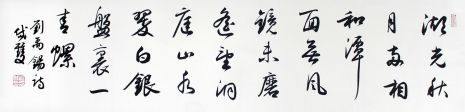 湖光秋
月兩相
和潭
面無風
鏡未磨
遙望洞
庭山水
翠白銀
盤裏一
青螺
劉禹錫詩